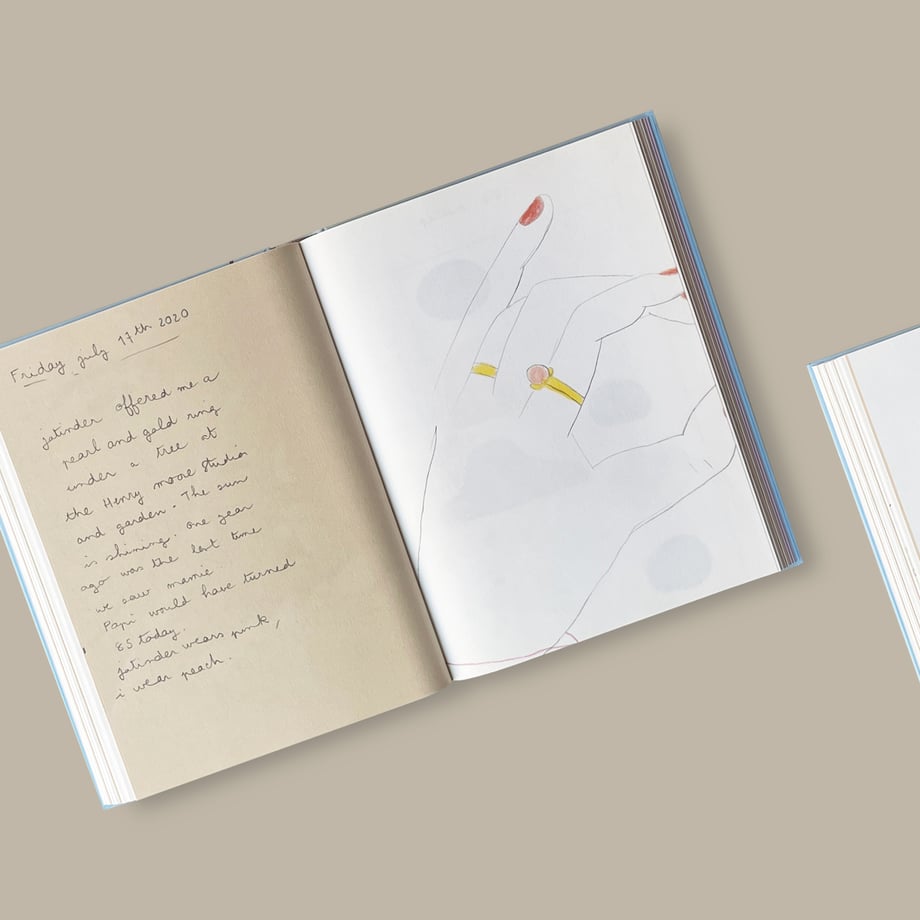 Friday july 17th 2020
jatinder offered me a
pearl and gold ring
under a tree at
the Henry moore Studios
and garden. The sun
is shining. one year
ago was the last time
we saw mamie
Papi would have turned
85 today.
jatinder wears pink,
i wear peach.